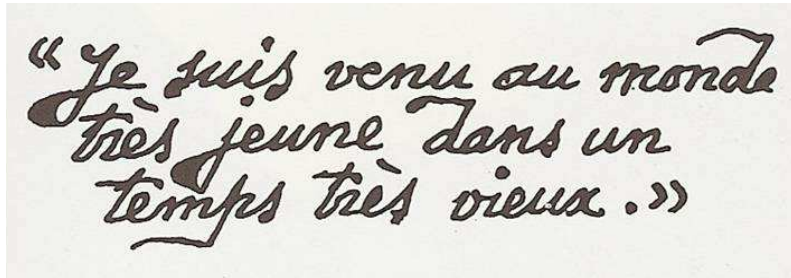 “Je suis venu au monde
très jeune dans un
temps très vieux.”